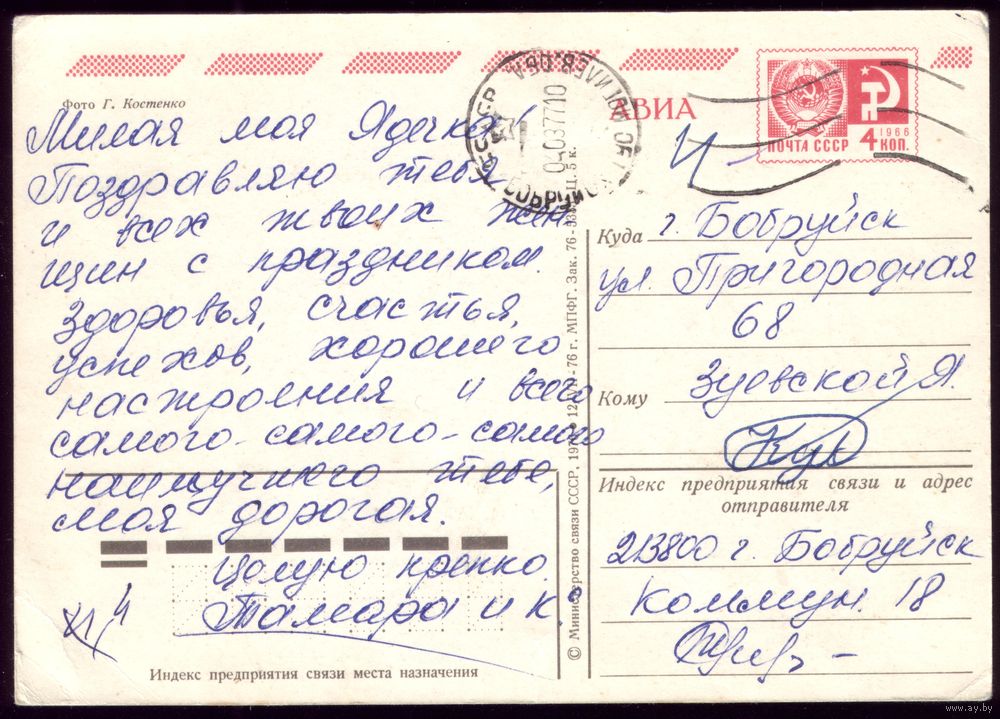 Фото Г. Костенко
Милая моя Ядечка!
Поздравляю тебя
и всех твоих жен
щин с праздником.
Здоровья, счастья,
успехов, хорошего
настроения и всего
самого-самого-самого
наилучшего тебе,
моя дорогая.
Целую крепко.
Тамара и К°
Индекс предприятия связи места назначения
© Министерство связи СССР, 197
76 г. МПФГ. Зак. 76-
Ц. 5 к.
АВИА
ПОЧТА СССР
1966
4 КОП.
Куда г. Бобруйск
ул. Пригородная
68
Кому Зуевской Я.
Индекс предприятия связи и адрес
отправителя
213800 г. Бобруйск
Коммун. 18
www.ay.by